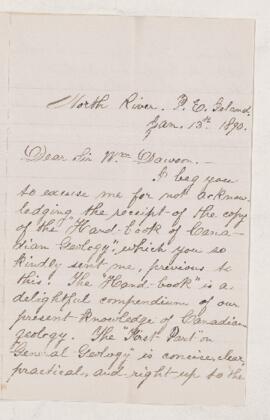 North River. P. E. Island.
Jan. 13th 1890.
Dear Sir Wm Dawson. –
I beg you
to excuse me for not acknow-
ledging the receipt of the copy
of the "Hand-book of Cana-
dian Geology", which you so
kindly sent me, previous to
this. The "Hand-book" is a
delightful compendium of our
present knowledge of Canadian
geology. The "First Part" on
General Geology is concise, clear,
practical, and right up to the